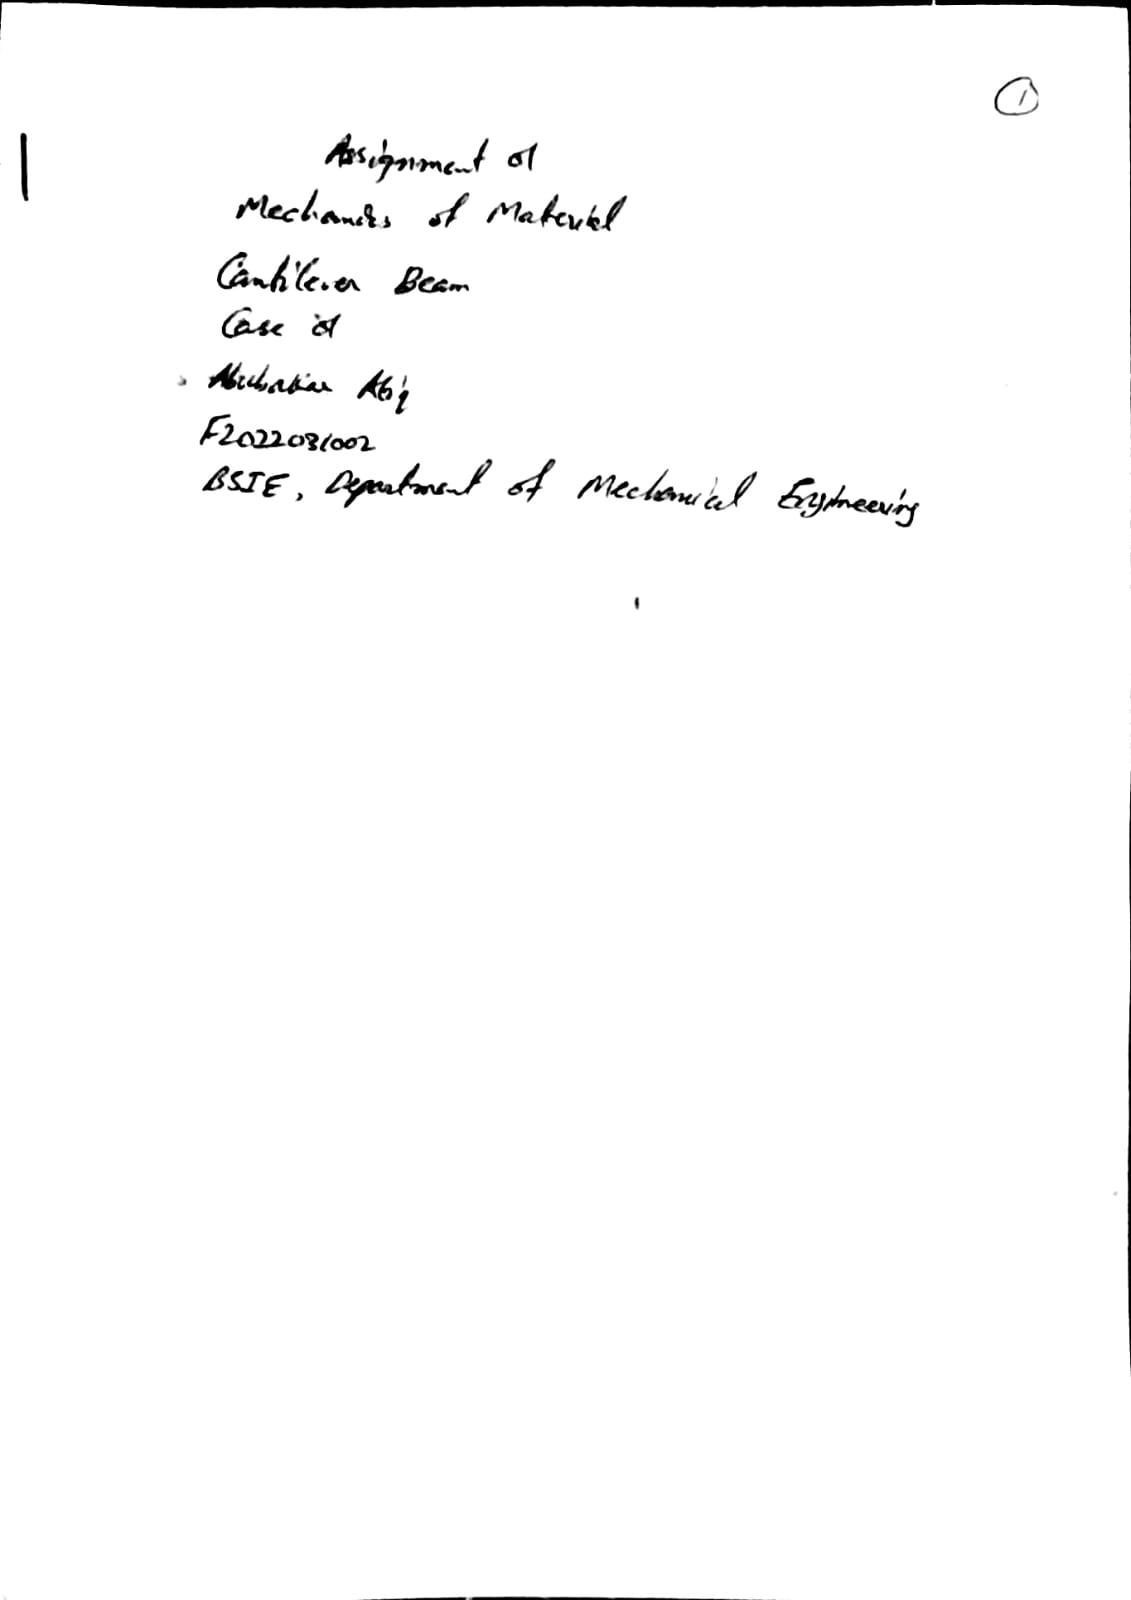 1
Assignment of
Mechanics of Material
Cantilever Beam
Case of
Abubakar Atiq
F2022031002
BSIE, Department of Mechanical Engineering